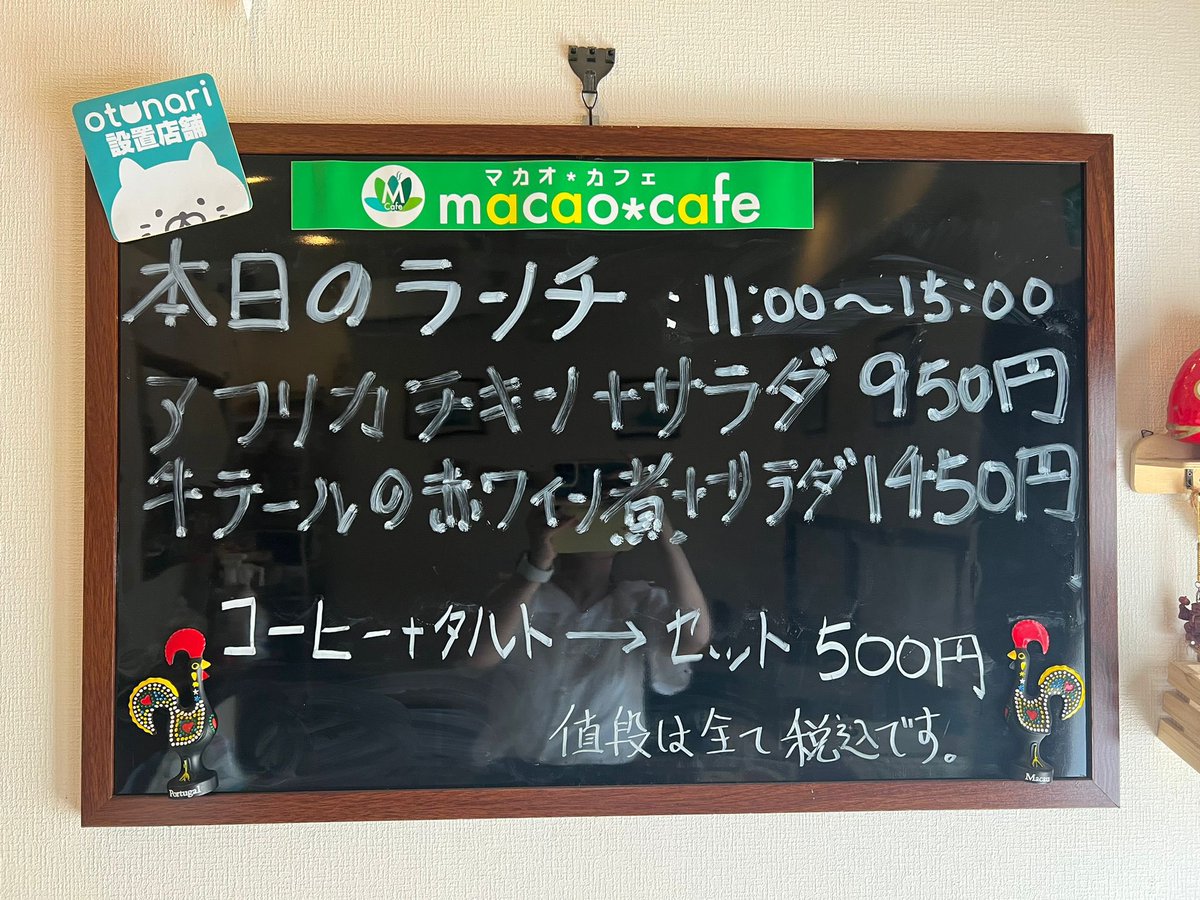 otonari
設置店舗
マカオ*カフェ
M Cafe
macao*cafe
本日のランチ：11:00～15:00
アフリカチキン+サラダ 950円
牛テールの赤ワイン煮+サラダ 1450円
コーヒー+タルト→セット 500円
値段は全て税込です。
Portugal
Macau